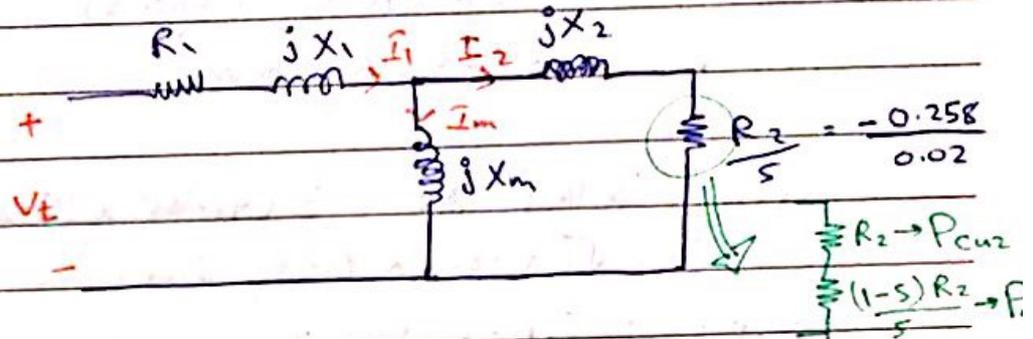 R1 jX1 I1 I2 jX2
+ Im R2/s = -0.258/0.02
Vt jXm
- R2 → Pcu2
(1-s)R2/s → P